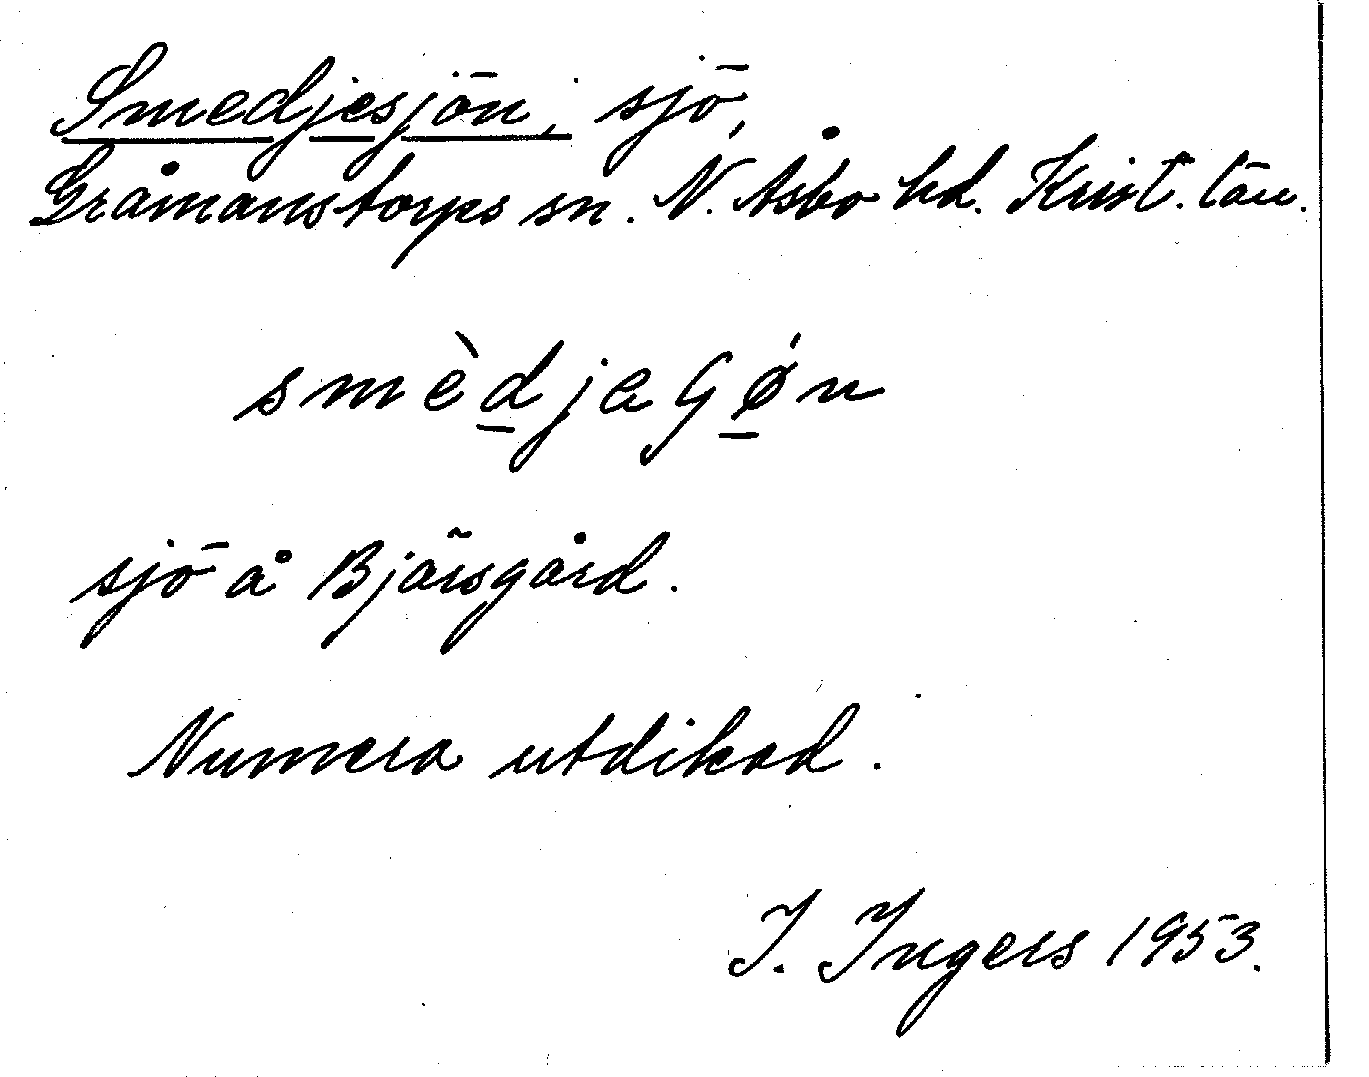 Smedjesjön, sjö,
Gråmanstorps sn. N. Åsbo hd. Krist. län.
smèdjaɢǿn
sjö å Bjärsgård.
Numera utdikad.
I. Ingers 1953.